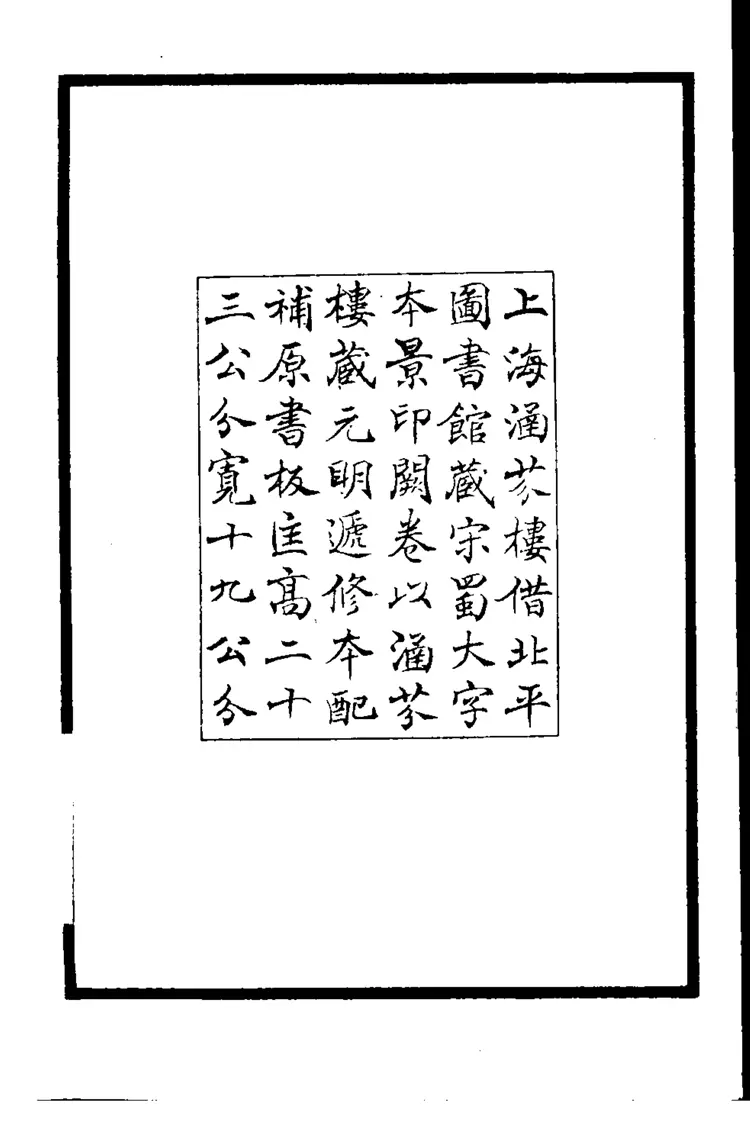 上海涵芬樓借北平
圖書館藏宋蜀大字
本景印闕卷以涵芬
樓藏元明遞修本配
補原書板匡高二十
三公分寬十九公分